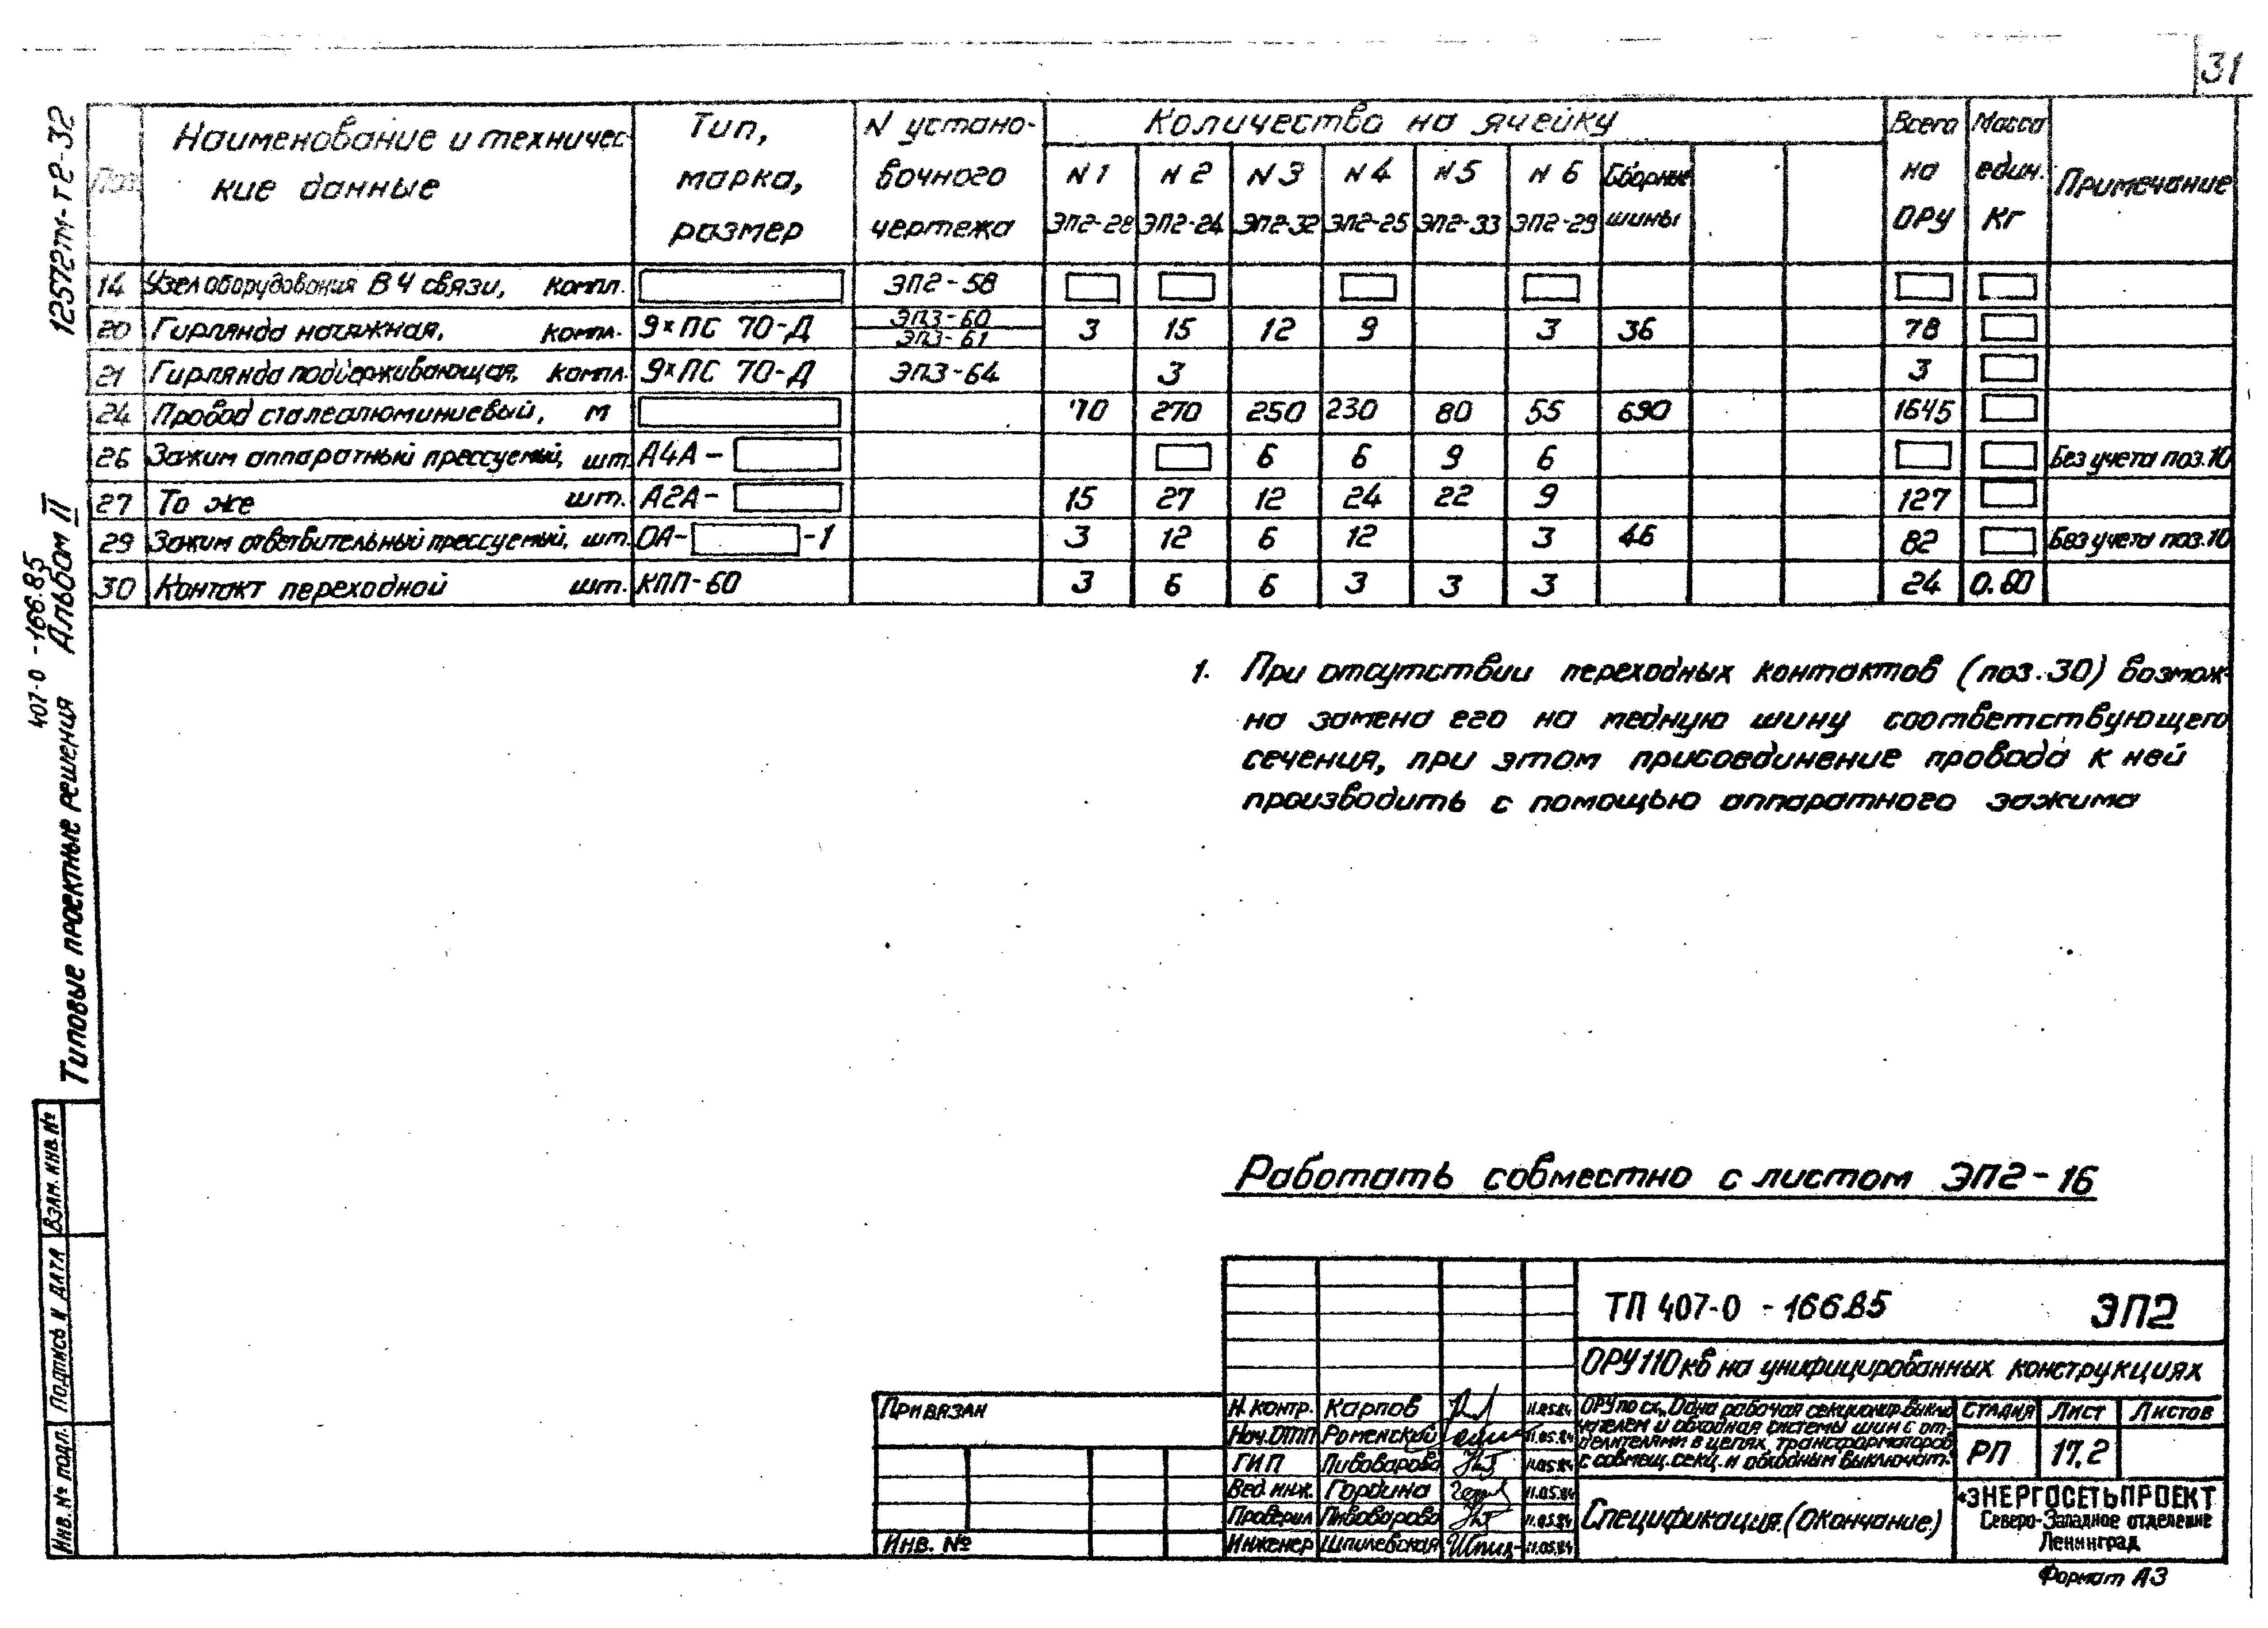 31
12572тм-т2-32
407-0 -166.85
Типовые проектные решения Альбом II
Поз. Наименование и техничес- Тип, N устано- Количество на ячейку Всего Масса Примечание
кие данные марка, вочного N 1 N 2 N 3 N 4 N 5 N 6 Сборные на един.
размер чертежа ЭП2-28 ЭП2-24 ЭП2-32 ЭП2-25 ЭП2-33 ЭП2-29 шины ОРУ кг
14 Узел оборудования ВЧ связи, компл. ЭП2-58
20 Гирлянда натяжная, компл. 9×ПС 70-Д ЭП3-60 ЭП3-61 3 15 12 9 3 36 78
21 Гирлянда поддерживающая, компл. 9×ПС 70-Д ЭП3-64 3 3
24 Провод сталеалюминиевый, м 70 270 250 230 80 55 690 1645
26 Зажим аппаратный прессуемый, шт. А4А- 6 6 9 6 Без учета поз.10
27 То же шт. А2А- 15 27 12 24 22 9 127
29 Зажим ответвительный прессуемый, шт. ОА- -1 3 12 6 12 3 46 82 Без учета поз.10
30 Контакт переходной шт. КПП-60 3 6 6 3 3 3 24 0.60
1. При отсутствии переходных контактов (поз.30) возмож-
на замена его на медную шину соответствующего
сечения, при этом присоединение провода к ней
производить с помощью аппаратного зажима
Работать совместно с листом ЭП2-16
ТП 407-0 -166.85 ЭП2
ОРУ 110 кв на унифицированных конструкциях
Н. контр. Карпов 11.05.84
Нач.ОТП Роменский 11.05.84
ГИП Пивоварова 11.05.84
Вед. инж. Гордина 11.05.84
Проверил Пивоварова 11.05.84
Инженер Шпилевская 11.05.84
ОРУ по сх. „Одна рабочая секционир. выклю
чателем и обходная системы шин с от-
делителями в цепях трансформаторов
с совмещ. секц. и обходным выключат."
Стадия Лист Листов
РП 17.2
Спецификация. (Окончание)
«ЭНЕРГОСЕТЬПРОЕКТ
Северо-Западное отделение
Ленинград
Формат А3
Привязан
Инв. №
Взам. инв. №
Подпись и дата
Инв. № подл.